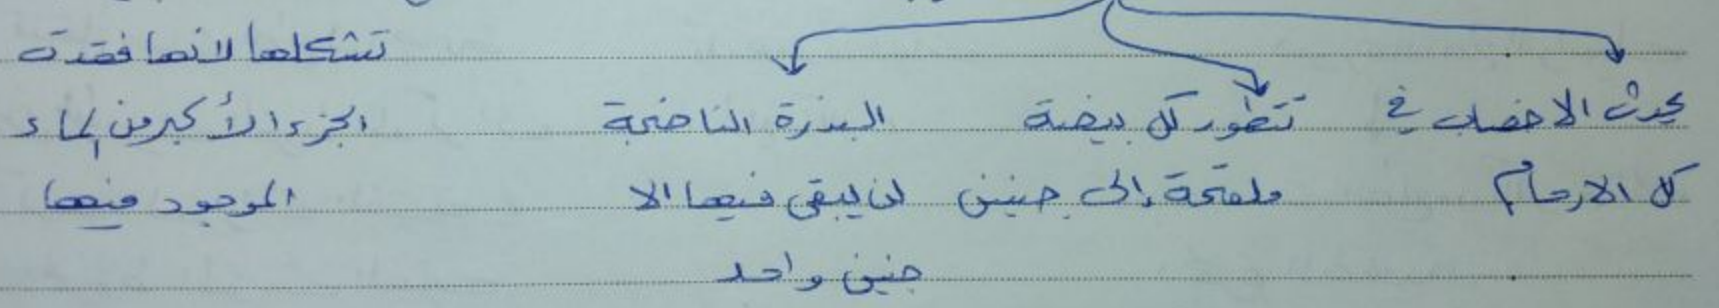 يحدث الاخصاب في
كل الارحام
تتطور كل بيضة
ملقحة إلى جنين
البذرة الناضجة
لن يبقى فيها الا
جنين واحد
تشكلها لانها فقدت
الجزء الأكبر من الماء
الموجود فيها